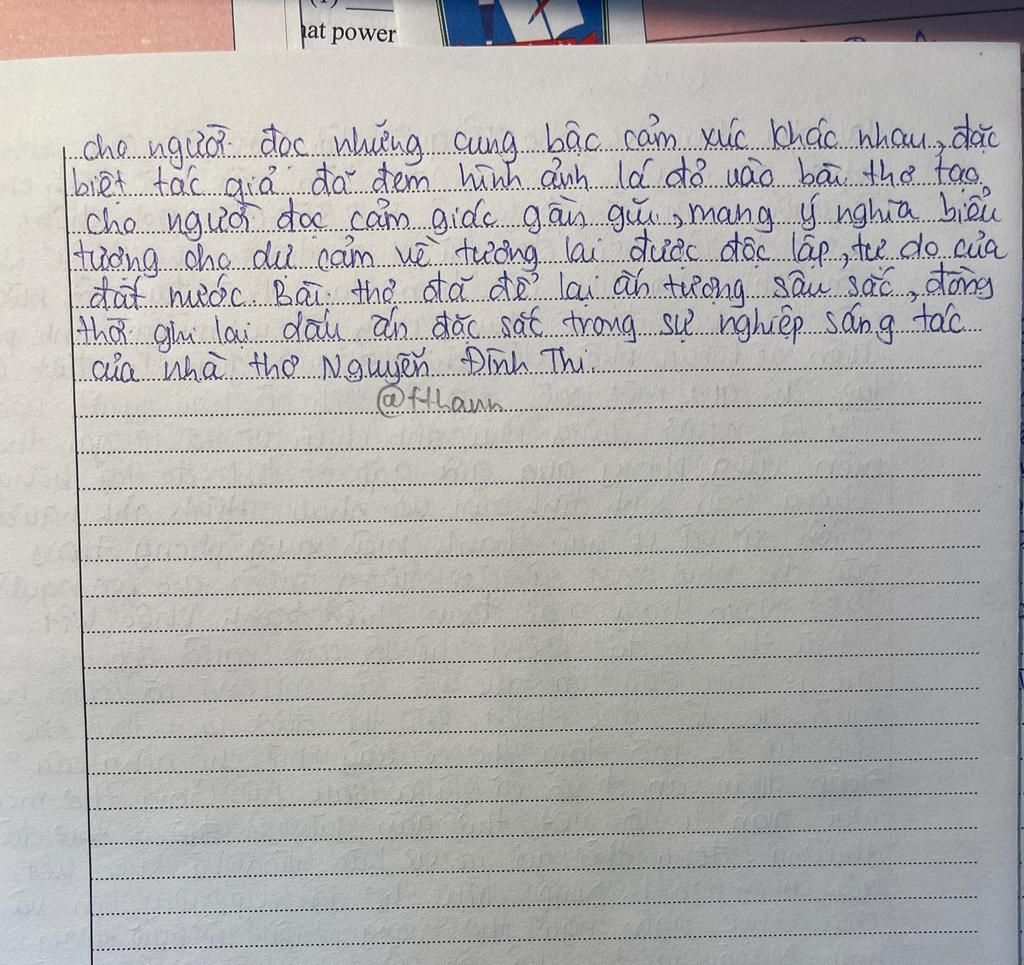 hat power
cho người đọc những cung bậc cảm xúc khác nhau, đặc
biệt tác giả đã đem hình ảnh lá đỏ vào bài thơ tạo
cho người đọc cảm giác gần gũi, mang ý nghĩa biểu
tượng cho dự cảm về tương lai được độc lập, tự do của
đất nước. Bài thơ đã để lại ấn tượng sâu sắc, đồng
thời ghi lại dấu ấn đặc sắc trong sự nghiệp sáng tác
của nhà thơ Nguyễn Đình Thi.
@fthanh